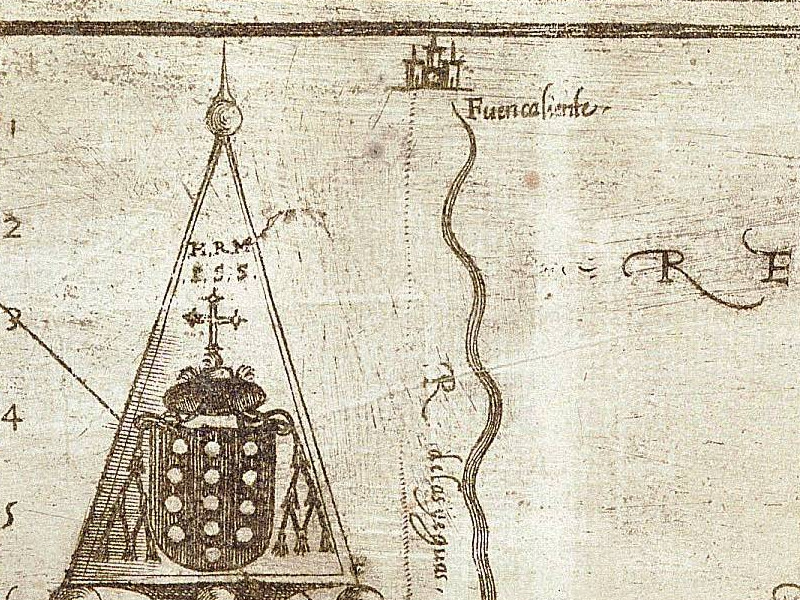 Fuencaliente
1
2
H. R. M
S. S.
R E
3
4
R de las yeguas,
5